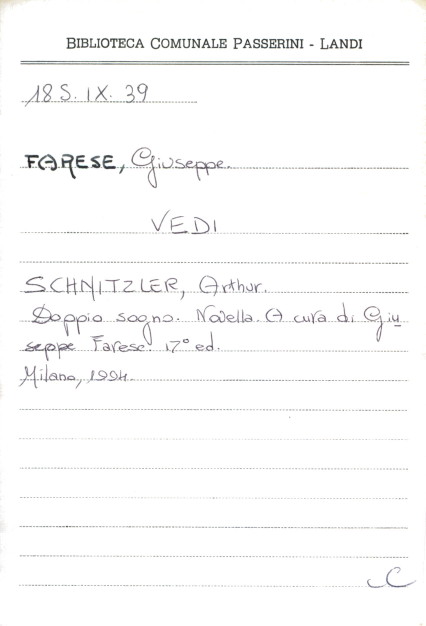 BIBLIOTECA COMUNALE PASSERINI - LANDI
18S. IX. 39
FARESE, Giuseppe.
VEDI
SCHNITZLER, Arthur.
Doppio sogno. Novella. A cura di Giu
seppe Farese. 17° ed.
Milano, 1994.
C